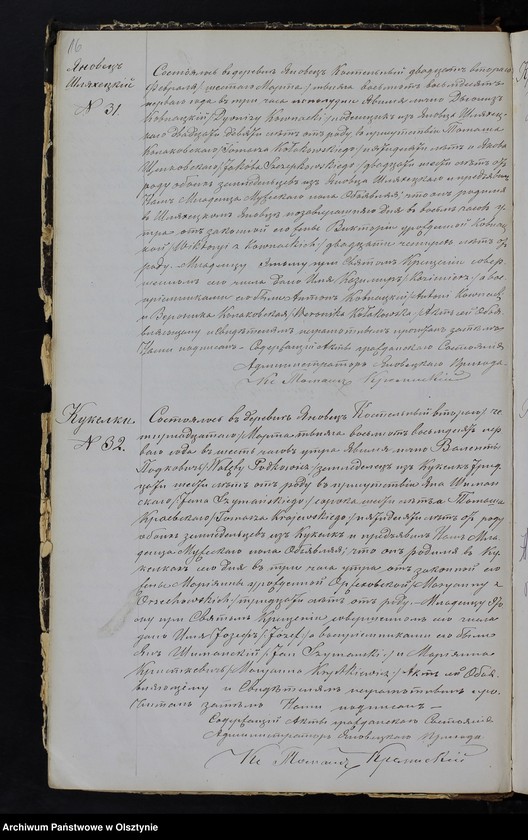 16
Яновецъ
Шляхецкій
№ 31.
Состоялось въ деревнѣ Яновецъ Костельный двадцать втораго
Февраля /шестаго Марта/ тысяча восемьсотъ восемьдесятъ
перваго года въ три часа пополудни Явился лично Діонизъ
Ковнацкій /Dyonizy Kownacki/ изъ Яновца Шляхец-
каго двадцати девяти лѣтъ отъ роду въ присутствіи Томаша
Колаковскаго /Tomasza Kołakowskiego/ и Якова
/Jakóba/ лѣтъ отъ
роду обоихъ земледѣльцевъ изъ Яновца Шляхецкаго и предъявилъ
Намъ Младенца Мужескаго пола Объявляя; что онъ родился
въ Шляхецкомъ Яновцѣ дня въ часовъ у-
тра отъ законной его жены Викторіи урожденной
/Wiktorya z Kownackich/ двадцати лѣтъ отъ
роду. Младенцу этому при Святомъ Крещеніи совер-
шенномъ сего числа дано Имя Казимиръ /Kazimierz/ а вос-
пріемниками его были Антонъ Ковнацкій /Antoni Kownacki/
и Вероника Колаковская /Weronika Kołakowska/ Актъ сей Объя-
вляющему и Свидѣтелямъ неграмотнымъ прочитанъ затѣмъ
Нами подписанъ. Содержащій Акты гражданскаго Состоянія
Администраторъ Яновецкаго Прихода
Кс Томашъ
Кукелки.
№ 32.
Состоялось въ деревнѣ Яновецъ Костельный втораго /че-
тырнадцатаго/ Марта тысяча восемьсотъ восемьдесятъ пер-
ваго года въ шесть часовъ утра явился лично Валентій
Подковичъ /Walenty Podkowicz/ земледѣлецъ изъ Кукелкъ трид-
цати шести лѣтъ отъ роду въ присутствіи Яна Шиман-
скаго /Jana Szymańskiego/ сорока лѣтъ и Томаша
Краевскаго /Tomasza Krajewskiego/ пятидесяти лѣтъ отъ роду
обоихъ земледѣльцевъ изъ Кукелкъ и предъявилъ Намъ Мла-
денца Мужескаго пола Объявляя; что онъ родился въ Ку-
келкахъ сего дня въ три часа утра отъ законной его
жены Маріянны урожденной Оржеховской /Maryanny z
Orzechowskich/ тридцати лѣтъ отъ роду. Младенцу Это-
му при Святомъ Крещеніи совершенномъ сего числа
дано Имя /Іозефъ/ Józef/ а воспріемниками его были
Янъ Шиманскій /Jan Szymański/ и Маріянна
/Maryanna/ Актъ сей Объя-
вляющему и Свидѣтелямъ неграмотнымъ про-
читанъ затѣмъ Нами подписанъ —
Содержащій Акты гражданскаго Состоянія
Администраторъ Яновецкаго Прихода
Кс Томашъ
Archiwum Państwowe w Olsztynie